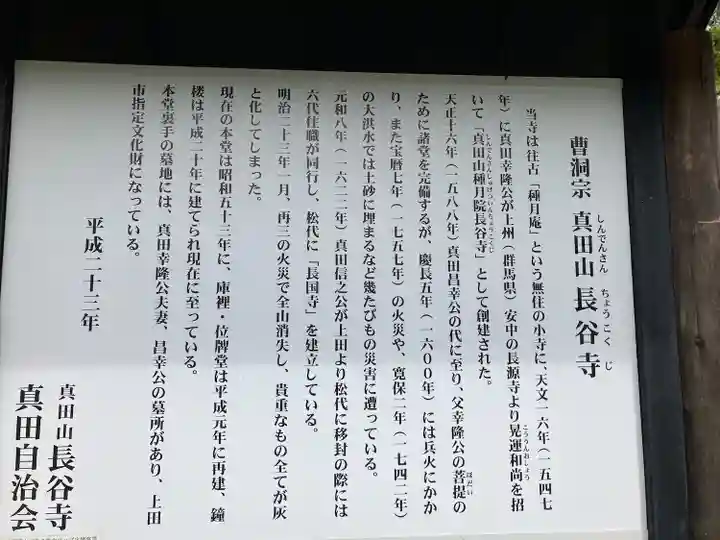 曹洞宗 真田山 長谷寺
しんでんさん ちょうこくじ
当寺は往古「種月庵」という無住の小寺に、天文一六年（一五四七
年）に真田幸隆公が上州（群馬県）安中の長源寺より晃運和尚を招
こううんおしょう
いて「真田山種月院長谷寺」として創建された。
しんでんさんしゅげついんちょうこくじ
天正十六年（一五八八年）真田昌幸公の代に至り、父幸隆公の菩提の
ぼだい
ために諸堂を完備するが、慶長五年（一六００年）には兵火にかか
り、また宝暦七年（一七五七年）の火災や、寛保二年（一七四二年）
の大洪水では土砂に埋まるなど幾たびもの災害に遭っている。
元和八年（一六二二年）真田信之公が上田より松代に移封の際には
六代住職が同行し、松代に「長国寺」を建立している。
明治二十三年一月、再三の火災で全山消失し、貴重なもの全てが灰
と化してしまった。
現在の本堂は昭和五十三年に、庫裡・位牌堂は平成元年に再建、鐘
楼は平成二十年に建てられ現在に至っている。
本堂裏手の墓地には、真田幸隆公夫妻、昌幸公の墓所があり、上田
市指定文化財になっている。
平成二十三年
真田山 長谷寺
真田自治会